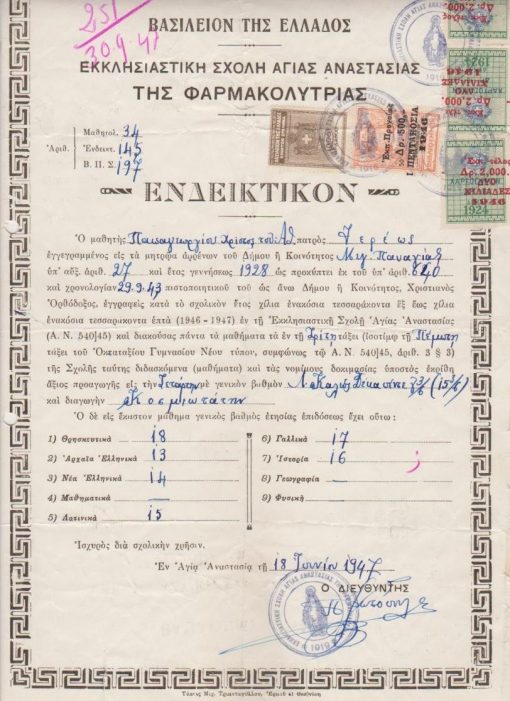 251
30.9.47
ΒΑΣΙΛΕΙΟΝ ΤΗΣ ΕΛΛΑΔΟΣ
ΕΚΚΛΗΣΙΑΣΤΙΚΗ ΣΧΟΛΗ ΑΓΙΑΣ ΑΝΑΣΤΑΣΙΑΣ
ΤΗΣ ΦΑΡΜΑΚΟΛΥΤΡΙΑΣ
Μαθητολ. 34
Ἀριθ. Ἐνδεικτ. 145
Β. Π. Σ. 197
ΕΝΔΕΙΚΤΙΚΟΝ
Ὁ μαθητής Παπαγεωργίου Χρῖστος τοῦ Ἀθ πατρός Ἱερέως
ἐγγεγραμμένος εἰς τὰ μητρῷα ἀρρένων τοῦ Δήμου ἢ Κοινότητος Μεγ. Παναγίας
ὑπ' αὔξ. ἀριθ. 27 καὶ ἔτος γεννήσεως 1928 ὡς προκύπτει ἐκ τοῦ ὑπ' ἀριθ. 640
καὶ χρονολογίαν 29.9.43 πιστοποιητικοῦ τοῦ ὡς ἄνω Δήμου ἢ Κοινότητος, Χριστιανὸς
Ὀρθόδοξος, ἐγγραφεὶς κατὰ τὸ σχολικὸν ἔτος χίλια ἐνακόσια τεσσαράκοντα ἓξ ἕως χίλια
ἐνακόσια τεσσαράκοντα ἑπτὰ (1946-1947) ἐν τῇ Ἐκκλησιαστικῇ Σχολῇ Ἁγίας Ἀναστασίας
(Α. Ν. 540]45) καὶ διακούσας πάντα τὰ μαθήματα τὰ ἐν τῇ Τρίτῃ (ἰσοτίμῳ τῇ Πέμπτῃ
τάξει τοῦ Ὀκταταξίου Γυμνασίου Νέου τύπου, συμφώνως τῷ Α. Ν. 540]45, ἀριθ. 3 § 3)
τῆς Σχολῆς ταύτης διδασκόμενα (μαθήματα) καὶ τὰς νομίμους δοκιμασίας ὑποστὰς ἐκρίθη
ἄξιος προαγωγῆς εἰς τὴν Τετάρτην μὲ γενικὸν βαθμὸν Λ. Καλῶς Δεκαπέντε
καὶ διαγωγὴν «Κοσμιωτάτην
Ὁ δὲ εἰς ἕκαστον μάθημα γενικὸς βαθμὸς ἐτησίας ἐπιδόσεως ἔχει οὕτω:
1) Θρησκευτικὰ 18
2) Ἀρχαῖα Ἑλληνικὰ 13
3) Νέα Ἑλληνικὰ 14
4) Μαθηματικὰ —
5) Λατινικὰ 15
6) Γαλλικὰ 17
7) Ἱστορία 16
8) Γεωγραφία —
9) Φυσικὴ
Ἰσχυρὸς διὰ σχολικὴν χρῆσιν.
Ἐν Ἁγίᾳ Ἀναστασίᾳ τῇ 18 Ἰουνίου 1947
Ο ΔΙΕΥΘΥΝΤΗΣ